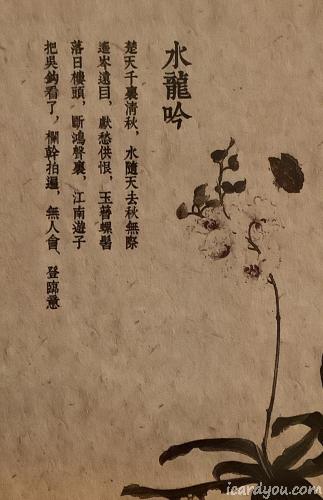 水龍吟
楚天千裏清秋，水隨天去秋無際
遙岑遠目，獻愁供恨，玉簪螺髻
落日樓頭，斷鴻聲裏，江南遊子
把吳鉤看了，欄幹拍遍，無人會、登臨意
icardyou.com